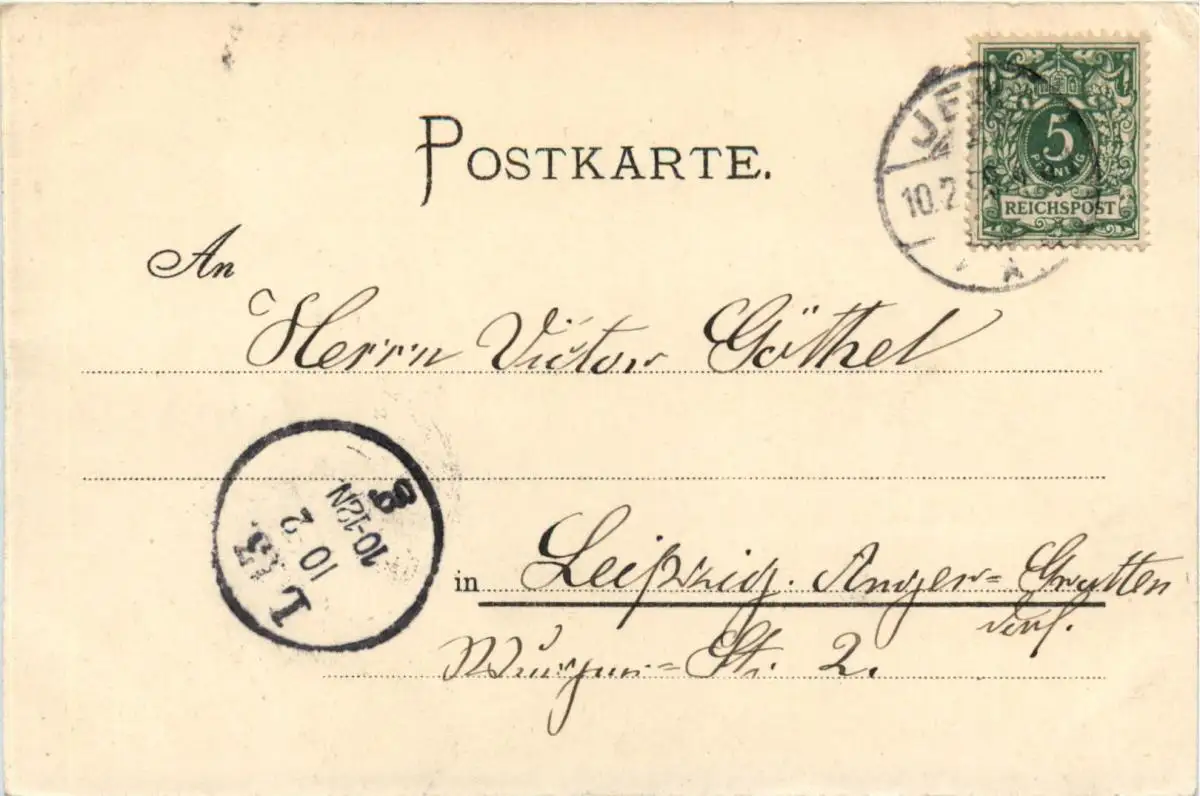 POSTKARTE.
5
PFENNIG
REICHSPOST
JE
10.2
A
An
Herrn Victor Göthel
L 13.
10 2
10-12N
g
in Leipzig. Anger=Crotten
dorf.
Wurzner=Str. 2.